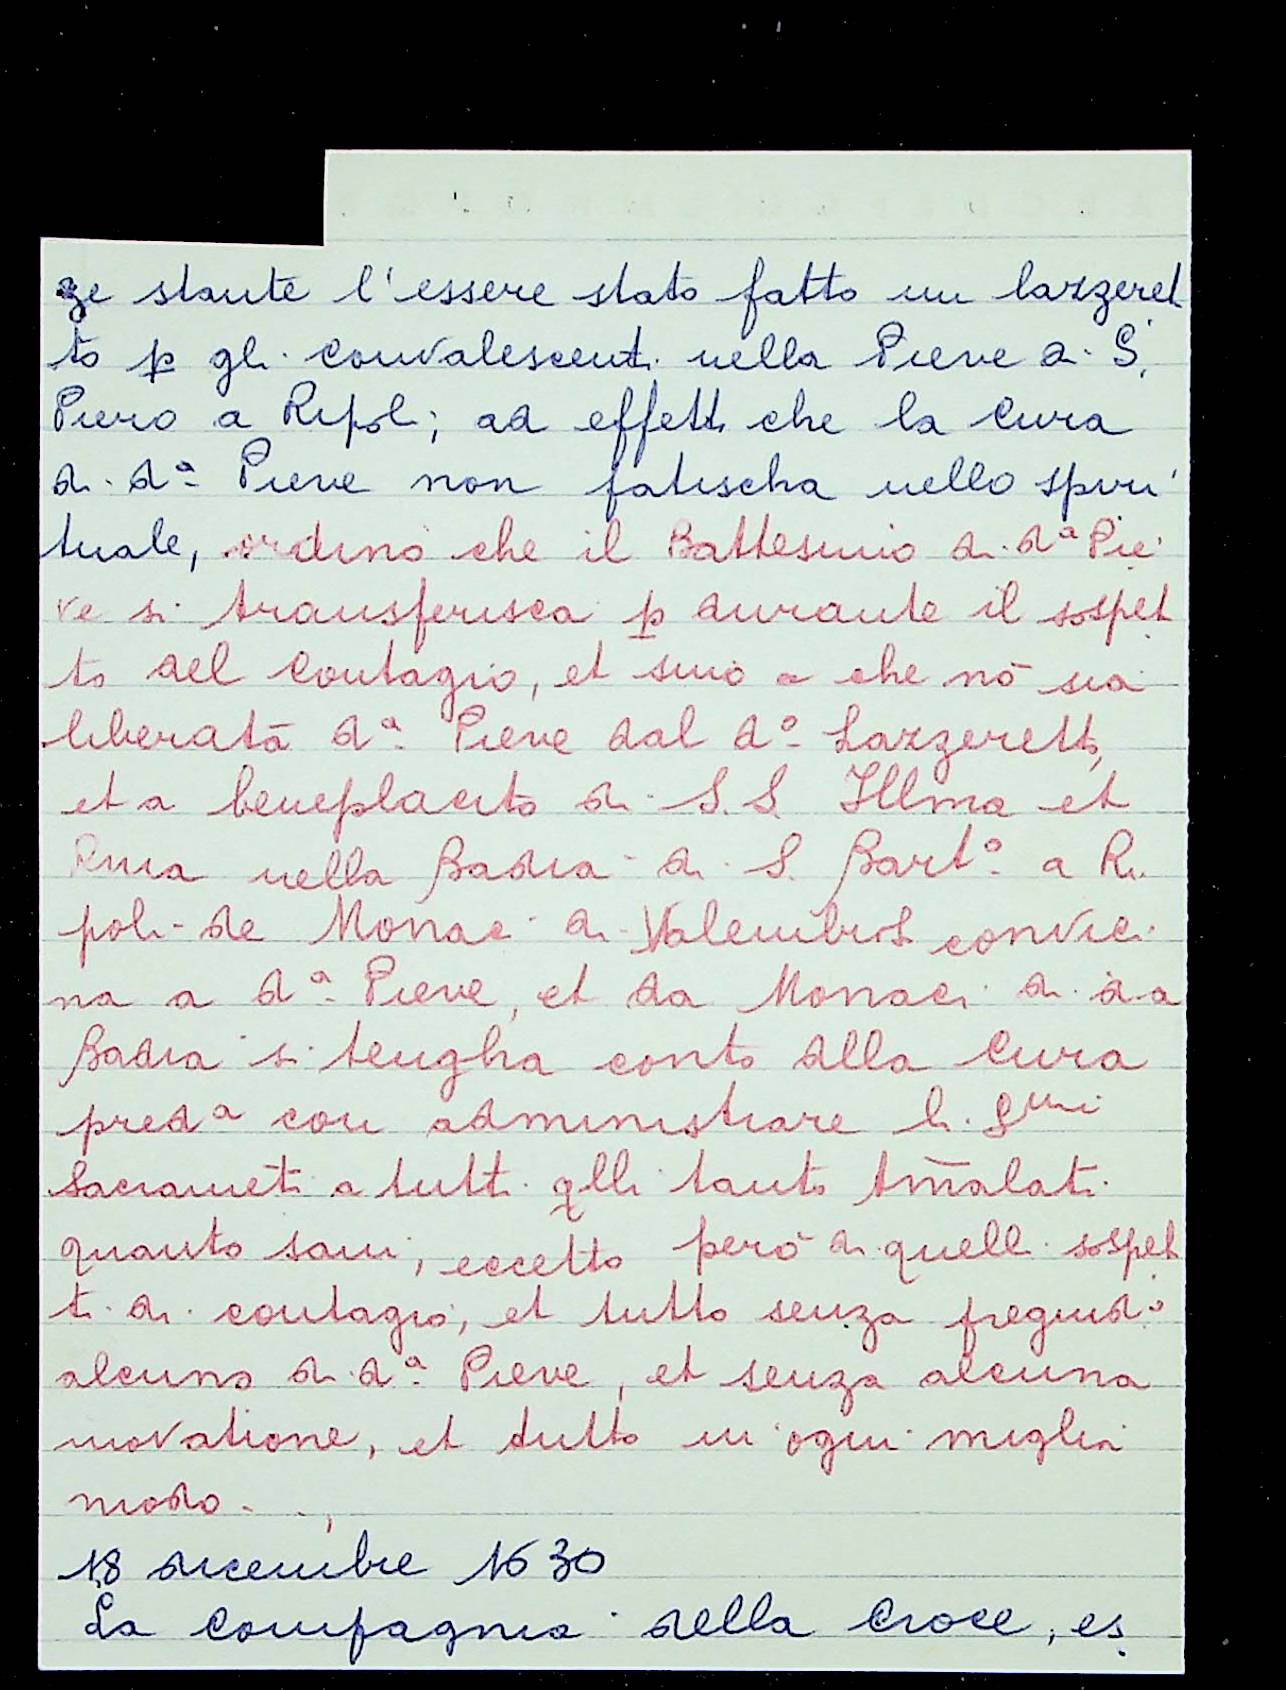 ze stante l'essere stato fatto un lazzeret
to p gli convalescenti nella Pieve di S.
Piero a Ripoli; ad effetto che la Cura
di dª Pieve non fatischa nello spiri
tuale, ordinò che il Battesimo di dª Pie
ve si transferisca p durante il sospet
to del Contagio, et sino a che nō sia
liberata dª Pieve dal dº Lazzeretto,
et a beneplacito di S.S. Illma et
Rma nella Badia di S. Bartº a Ri
poli de Monaci di convici
na a dª Pieve, et da Monaci di da
Badia si tengha conto della Cura
predª con administrare li Smi
Sacramēti a tutti qlli tanto Am̃alati
quanto sani, eccetto però di quelli sospet
ti di contagio, et tutto senza pregiudº
alcuno di dª Pieve, et senza alcuna
inovatione, et tutto in ogni miglior
modo.
18 dicembre 1630
La Compagnia della Croce, es